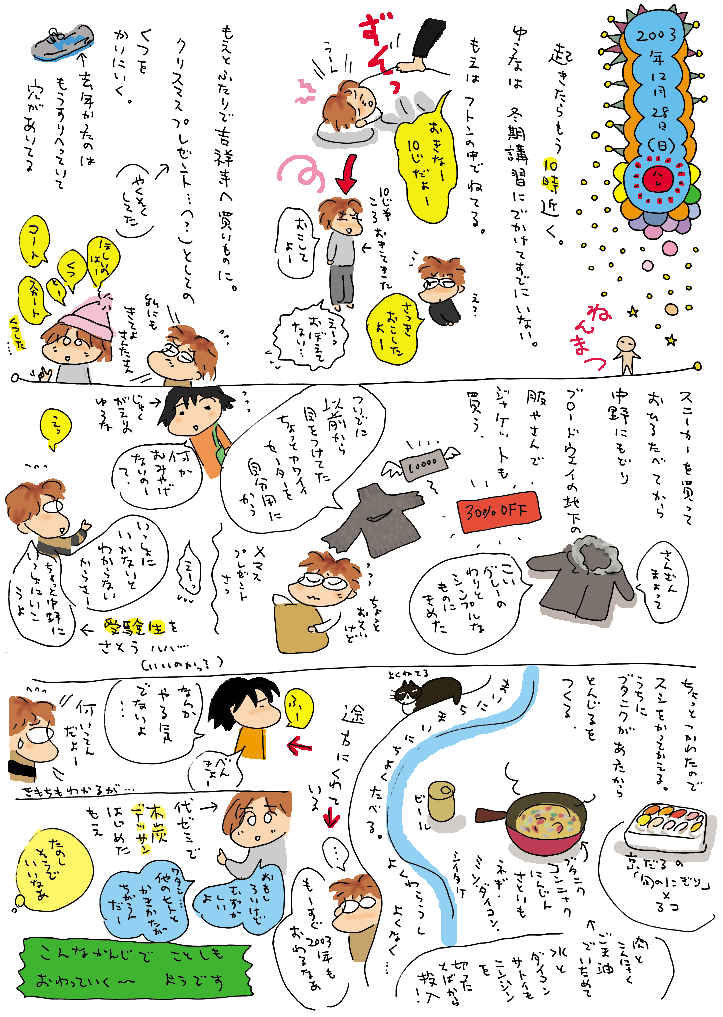 2003年12月28日(日)
ねんまつ
起きたらもう10時近く。
ゆうなは 冬期講習にでかけてすでにいない。
もえは フトンの中でねてる。
ずんっ
うーん
おきなー
10じだよー
10じ半
ころ おきてきた
おこして
よー
え?
さっき
おこした
よー
えー
おぼえて
ない…
もえとふたりで吉祥寺へ買いものに。
クリスマスプレゼント…(?)としての
くつを
かいにいく。
やくそく
してた
去年かったのは
もうすりへっていて
穴があいてる
ほしいのは
くつ
コート
スカート
スニーカーを買って
おひるたべてから
中野にもどり
ブロードウェイの地下の
服やさんで
ジャケットも
買う。
さんざん
まよって
こい
グレーの
わりとシンプルな
ものに
きめた
30%OFF
10000
ついでに
以前から
目をつけてた
ちょっとカワイイ
セーターを
自分用に
かう
Xマス
プレゼント
さっ
ちょっと
おくてい
けど
じゅく
がえりの
ゆうな
何か
おみやげ
ないのー
?
えっ
いっしょに
いかないと
わからない
からさー
えーっ
ちょっと中野に
いっしょにいこ
うよ
受験生を
さそう ハハ…
(いいのか?)
ちょっとつかれたので
スシをかってかえる。
うちに
ブタニクがあったから
とんじるを
つくる。
よくねてる
京だるの
「旬のにぎり」
×3コ
ブタニク
コンニャク
にんじん
さといも
ネギ
ダイコン
シイタケ
ビール
肉と
こんにゃく
ごま油
でいためて
水と
ダイコン
サトイモ
ニンジン
を
切った
そばから
投入
途方にくれて
いる
ふー
なんか
やる気
でないよ
…
べん
きょー
何いってん
だよー
きもちもわかるが…
代ゼミで
木炭
デッサン
はじめた
もえ
おもし
ろいけど
むずか
しい
ワタシ…
他のヒトと
かきかたが
ちがうん
だー
たのし
そうで
いいなあ
…
もーすぐ
2003年も
おわるなあ
こんなかんじで ことしも
おわっていく〜 ようです